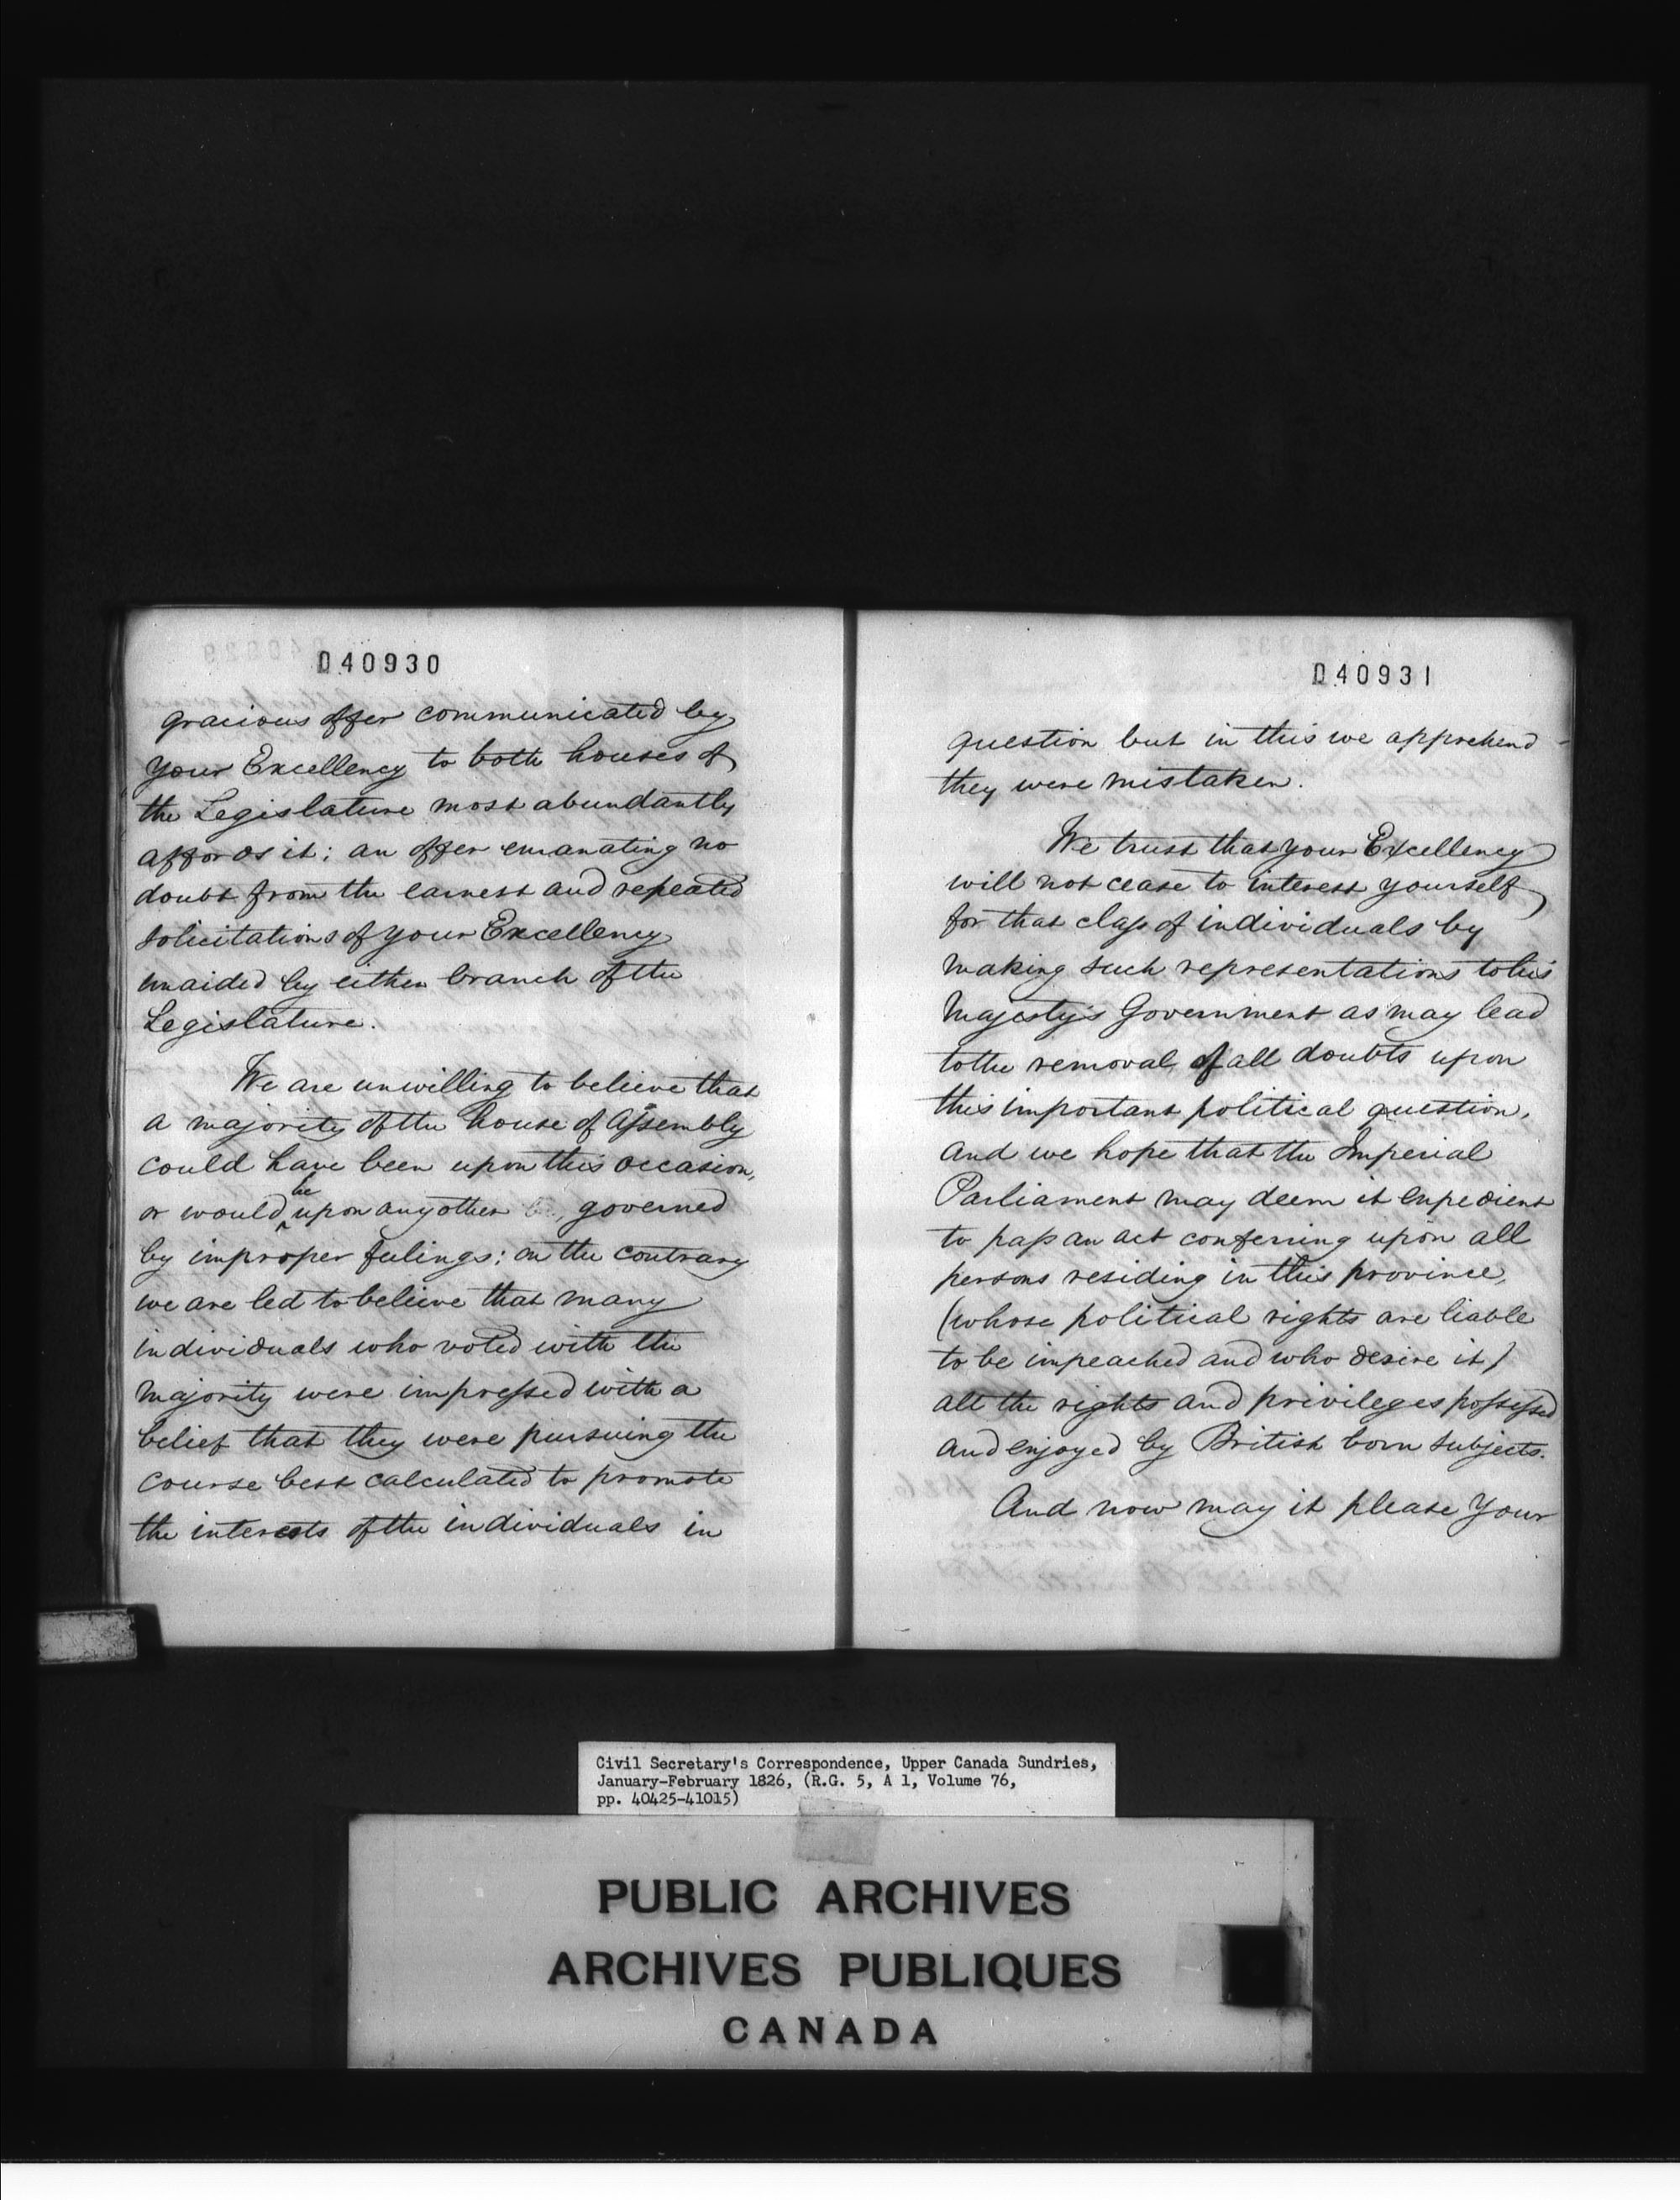 040930
gracious offer communicated by
your Excellency to both houses of
the Legislature most abundantly
affords it; an offer emanating no
doubt from the earnest and repeated
solicitations of your Excellency
unaided by either branch of the
Legislature.
We are unwilling to believe that
a majority of the house of Assembly
could have been upon this occasion,
be
or would upon any other governed
by improper feelings: on the contrary
we are led to believe that many
individuals who voted with the
majority were impressed with a
belief that they were pursuing the
course best calculated to promote
the interests of the individuals in
040931
question but in this we apprehend
they were mistaken.
We trust that your Excellency
will not cease to interest yourself
for that class of individuals by
making such representations to his
Majesty's Government as may lead
to the removal of all doubts upon
this important political question,
and we hope that the Imperial
Parliament may deem it expedient
to pass an act conferring upon all
persons residing in this province,
(whose political rights are liable
to be impeached and who desire it)
all the rights and privileges possessed
and enjoyed by British born subjects.
And now may it please Your
Civil Secretary's Correspondence, Upper Canada Sundries,
January-February 1826, (R.G. 5, A 1, Volume 76,
pp. 40425-41015)
PUBLIC ARCHIVES
ARCHIVES PUBLIQUES
CANADA